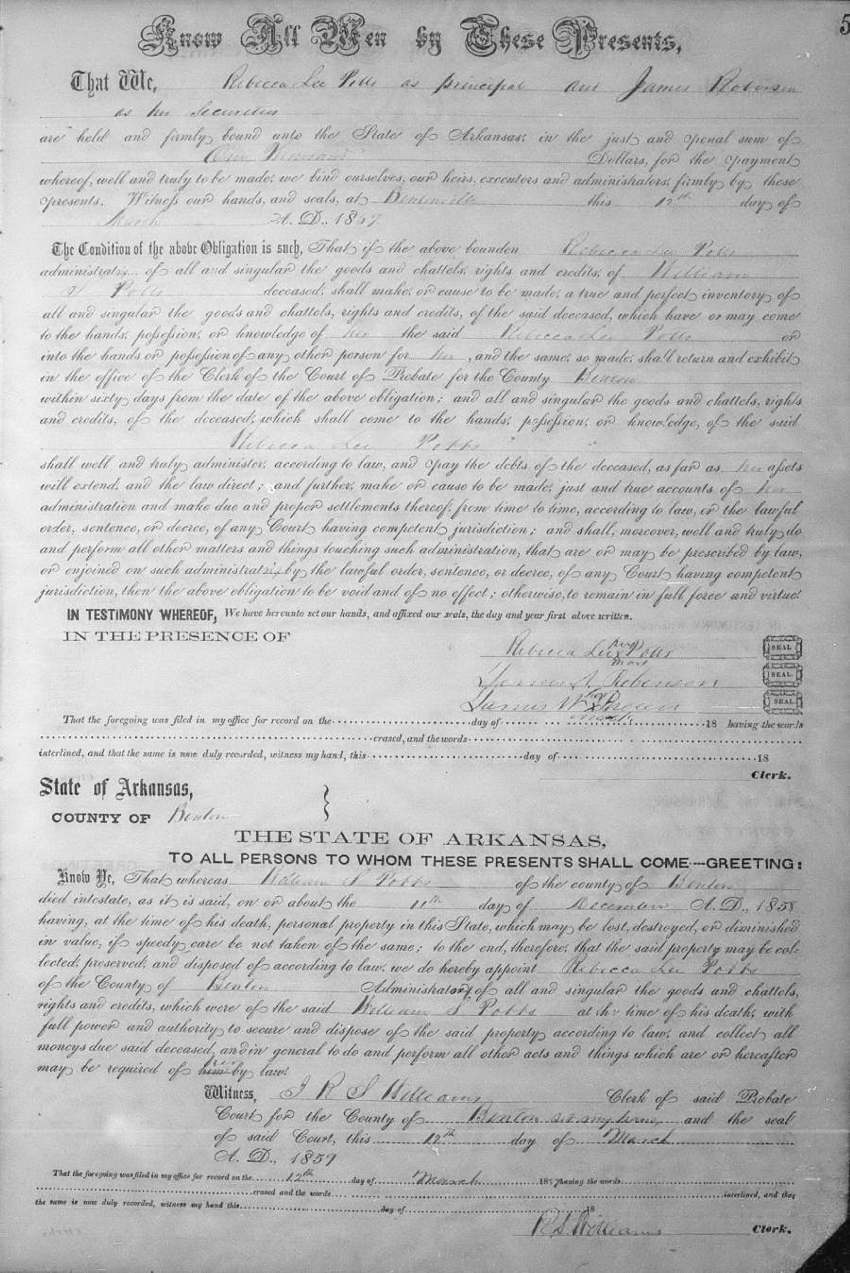 5
Know All Men by These Presents,
That We, Rebecca Lee Potts as principal and James Roberson
as her Securities
are held and firmly bound unto the State of Arkansas, in the just and penal sum of
One Thousand Dollars, for the payment
whereof, well and truly to be made, we bind ourselves, our heirs, executors and administrators, firmly by these
presents. Witness our hands, and seals, at Bentonville this 12th day of
March A. D., 1859
The Condition of the above Obligation is such, That if the above bounden Rebecca Lee Potts
administratrix of all and singular the goods and chattels, rights and credits, of William
S Potts deceased, shall make, or cause to be made, a true and perfect inventory of
all and singular the goods and chattels, rights and credits, of the said deceased, which have or may come
to the hands, possession, or knowledge of her the said Rebecca Lee Potts or
into the hands or possession of any other person for her, and the same, so made, shall return and exhibit
in the office of the Clerk of the Court of Probate for the County Benton
within sixty days from the date of the above obligation; and all and singular the goods and chattels, rights
and credits, of the deceased, which shall come to the hands, possession, or knowledge, of the said
Rebecca Lee Potts
shall well and truly administer, according to law, and pay the debts of the deceased, as far as her assets
will extend, and the law direct; and further, make or cause to be made, just and true accounts of her
administration and make due and proper settlements thereof, from time to time, according to law, or the lawful
order, sentence, or decree, of any Court having competent jurisdiction; and shall, moreover, well and truly do
and perform all other matters and things touching such administration, that are or may be prescribed by law,
or enjoined on such administratrix by the lawful order, sentence, or decree, of any Court having competent
jurisdiction, then the above obligation to be void and of no effect; otherwise, to remain in full force and virtue.
IN TESTIMONY WHEREOF, We have hereunto set our hands, and affixed our seals, the day and year first above written.
IN THE PRESENCE OF
Rebecca Lee her Potts SEAL
mark
James Roberson SEAL
James W SEAL
mark
That the foregoing was filed in my office for record on the day of 18 having the words
erased, and the words
interlined, and that the same is now duly recorded, witness my hand, this day of 18
Clerk.
State of Arkansas,
COUNTY OF Benton
THE STATE OF ARKANSAS,
TO ALL PERSONS TO WHOM THESE PRESENTS SHALL COME---GREETING:
Know Ye, That whereas William S Potts of the county of Benton
died intestate, as it is said, on or about the 11th day of December A. D., 1858
having, at the time of his death, personal property in this State, which may be lost, destroyed, or diminished
in value, if speedy care be not taken of the same; to the end, therefore, that the said property may be col-
lected, preserved, and disposed of according to law, we do hereby appoint Rebecca Lee Potts
of the County of Benton Administratrix of all and singular the goods and chattels,
rights and credits, which were of the said William S Potts at the time of his death, with
full power and authority to secure and dispose of the said property according to law, and collect all
moneys due said deceased, and in general to do and perform all other acts and things which are or hereafter
may be required of her by law.
Witness, J R S Williams Clerk of said Probate
Court for the County of Benton and the seal
of said Court, this 12th day of March
A. D., 1859
That the foregoing was filed in my office for record on the 12th day of March 185 having the words
erased and the words interlined, and that
the same is now duly recorded, witness my hand this day of 18
R S Williams Clerk.